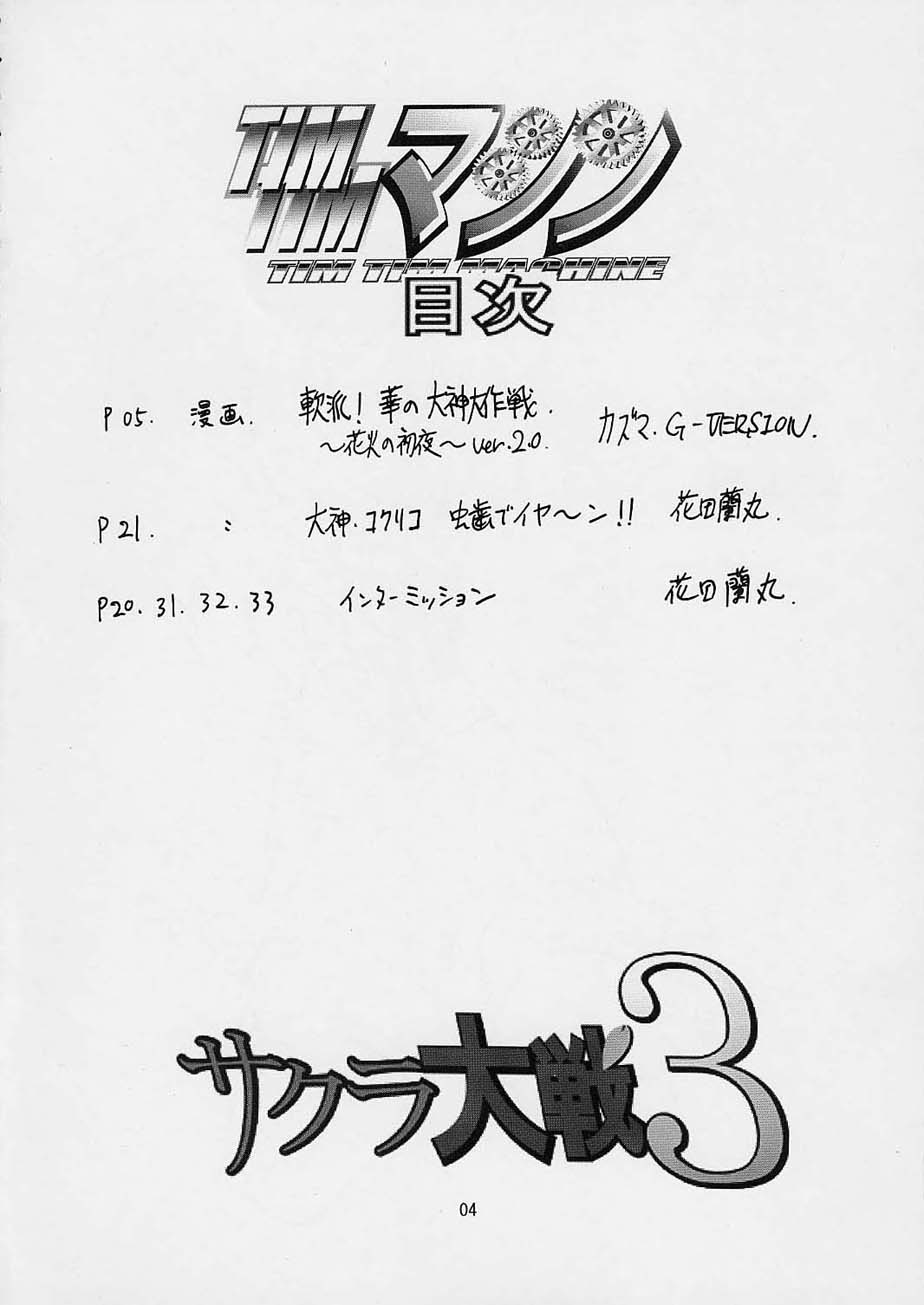 TIM
TIMマシン
TIM TIM MACHINE
目次
P 05. 漫画. 軟派! 華の大神大作戦. カズマ. G-VERSION.
～花火の初夜～ ver.2.0
P 21. : 大神・コクリコ 虫歯でイヤ～ン!! 花田蘭丸.
P20. 31. 32. 33 インターミッション 花田蘭丸.
サクラ大戦3
04